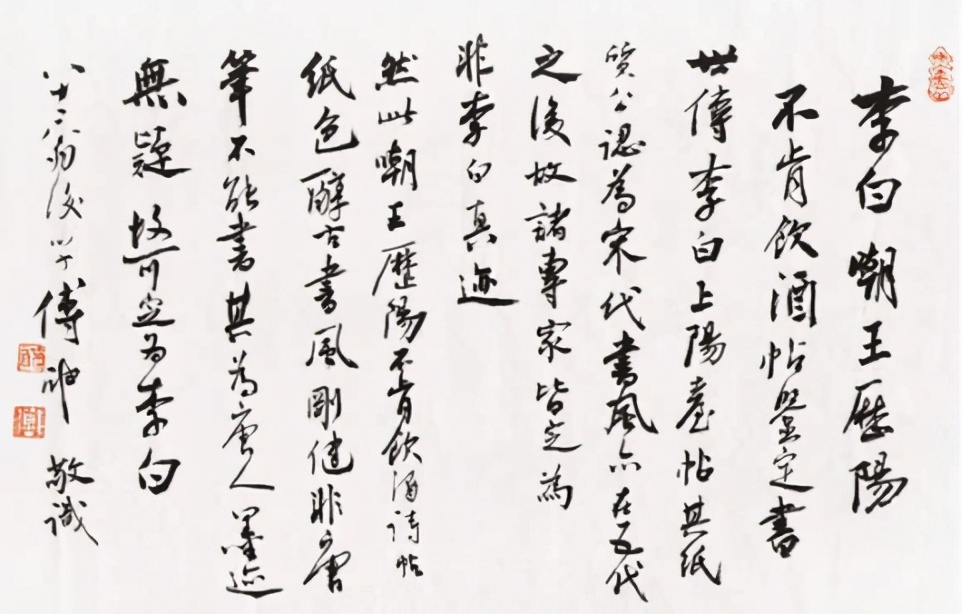 李白嘲王歷陽
不肯飲酒帖鑒定書
世傳李白上陽臺帖其紙
質公認為宋代書風亦在五代
之後故諸專家皆定為
非李白真迹
然此嘲王歷陽不肯飲酒詩帖
紙色醇古書風剛健非唐
筆不能書其為唐人墨迹
無疑故可定為李白
八十傅申敬識